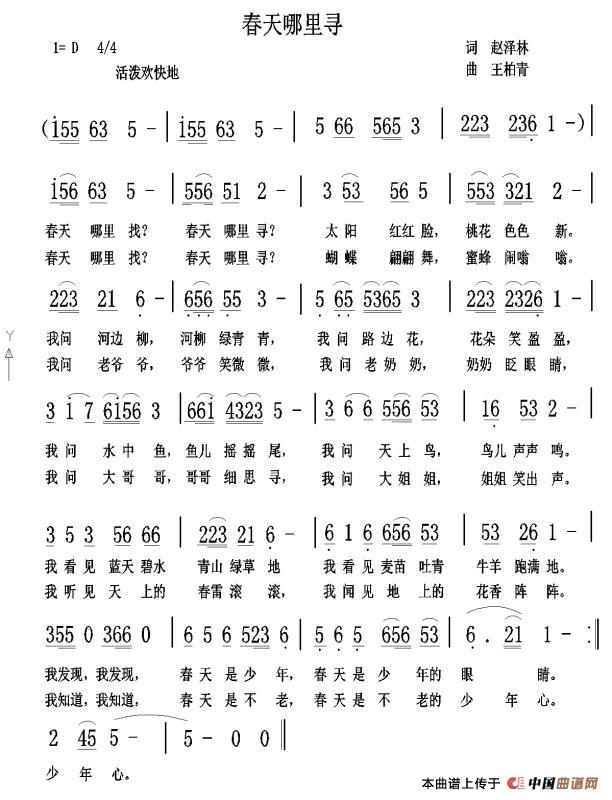 春天哪里寻
1= D 4/4 词 赵泽林
活泼欢快地 曲 王柏青
(155 63 5 - | 155 63 5 - | 5 66 565 3 | 223 236 1 - )|
156 63 5 - | 556 51 2 - | 3 53 56 56 | 553 321 2 -
春天 哪里 找? 春天 哪里 寻? 太 阳 红红 脸, 桃花 色色 新。
春天 哪里 找? 春天 哪里 寻? 蝴 蝶 翩翩 舞, 蜜蜂 闹嗡 嗡。
223 21 6 - | 656 55 3 - | 5 65 5365 3 | 223 2326 1 -
我问 河边 柳, 河柳 绿青 青, 我 问 路边 花, 花朵 笑盈 盈,
我问 老爷 爷, 爷爷 笑微 微, 我 问 老奶 奶, 奶奶 眨眼 睛,
Y
3 1 7 6156 3 | 661 4323 5 - | 3 6 6 556 53 | 16 53 2 -
我 问 水中 鱼, 鱼儿 摇摇 尾, 我 问 天上 鸟, 鸟儿 声声 鸣。
我 问 大哥 哥, 哥哥 细思 寻, 我 问 大姐 姐, 姐姐 笑出 声。
3 5 3 56 66 | 223 21 6 - | 6 1 6 656 53 | 53 26 1 -
我 看 见 蓝天 碧水 青山 绿草 地 我 看 见 麦苗 吐青 牛羊 跑满 地。
我 听 见 天上 的 春雷 滚 滚, 我 闻 见 地上 的 花香 阵 阵。
355 0 366 0 | 6 5 6 523 6 | 5 6 5 656 53 | 6 . 21 1 - :||
我发现, 我发现, 春 天 是 少 年, 春 天 是 少 年 的 眼 睛。
我知道, 我知道, 春 天 是 不 老, 春 天 是 不 老 的 少 年 心。
2 45 5 - | 5 - 0 0 ||
少 年 心。
本曲谱上传于 中国曲谱网